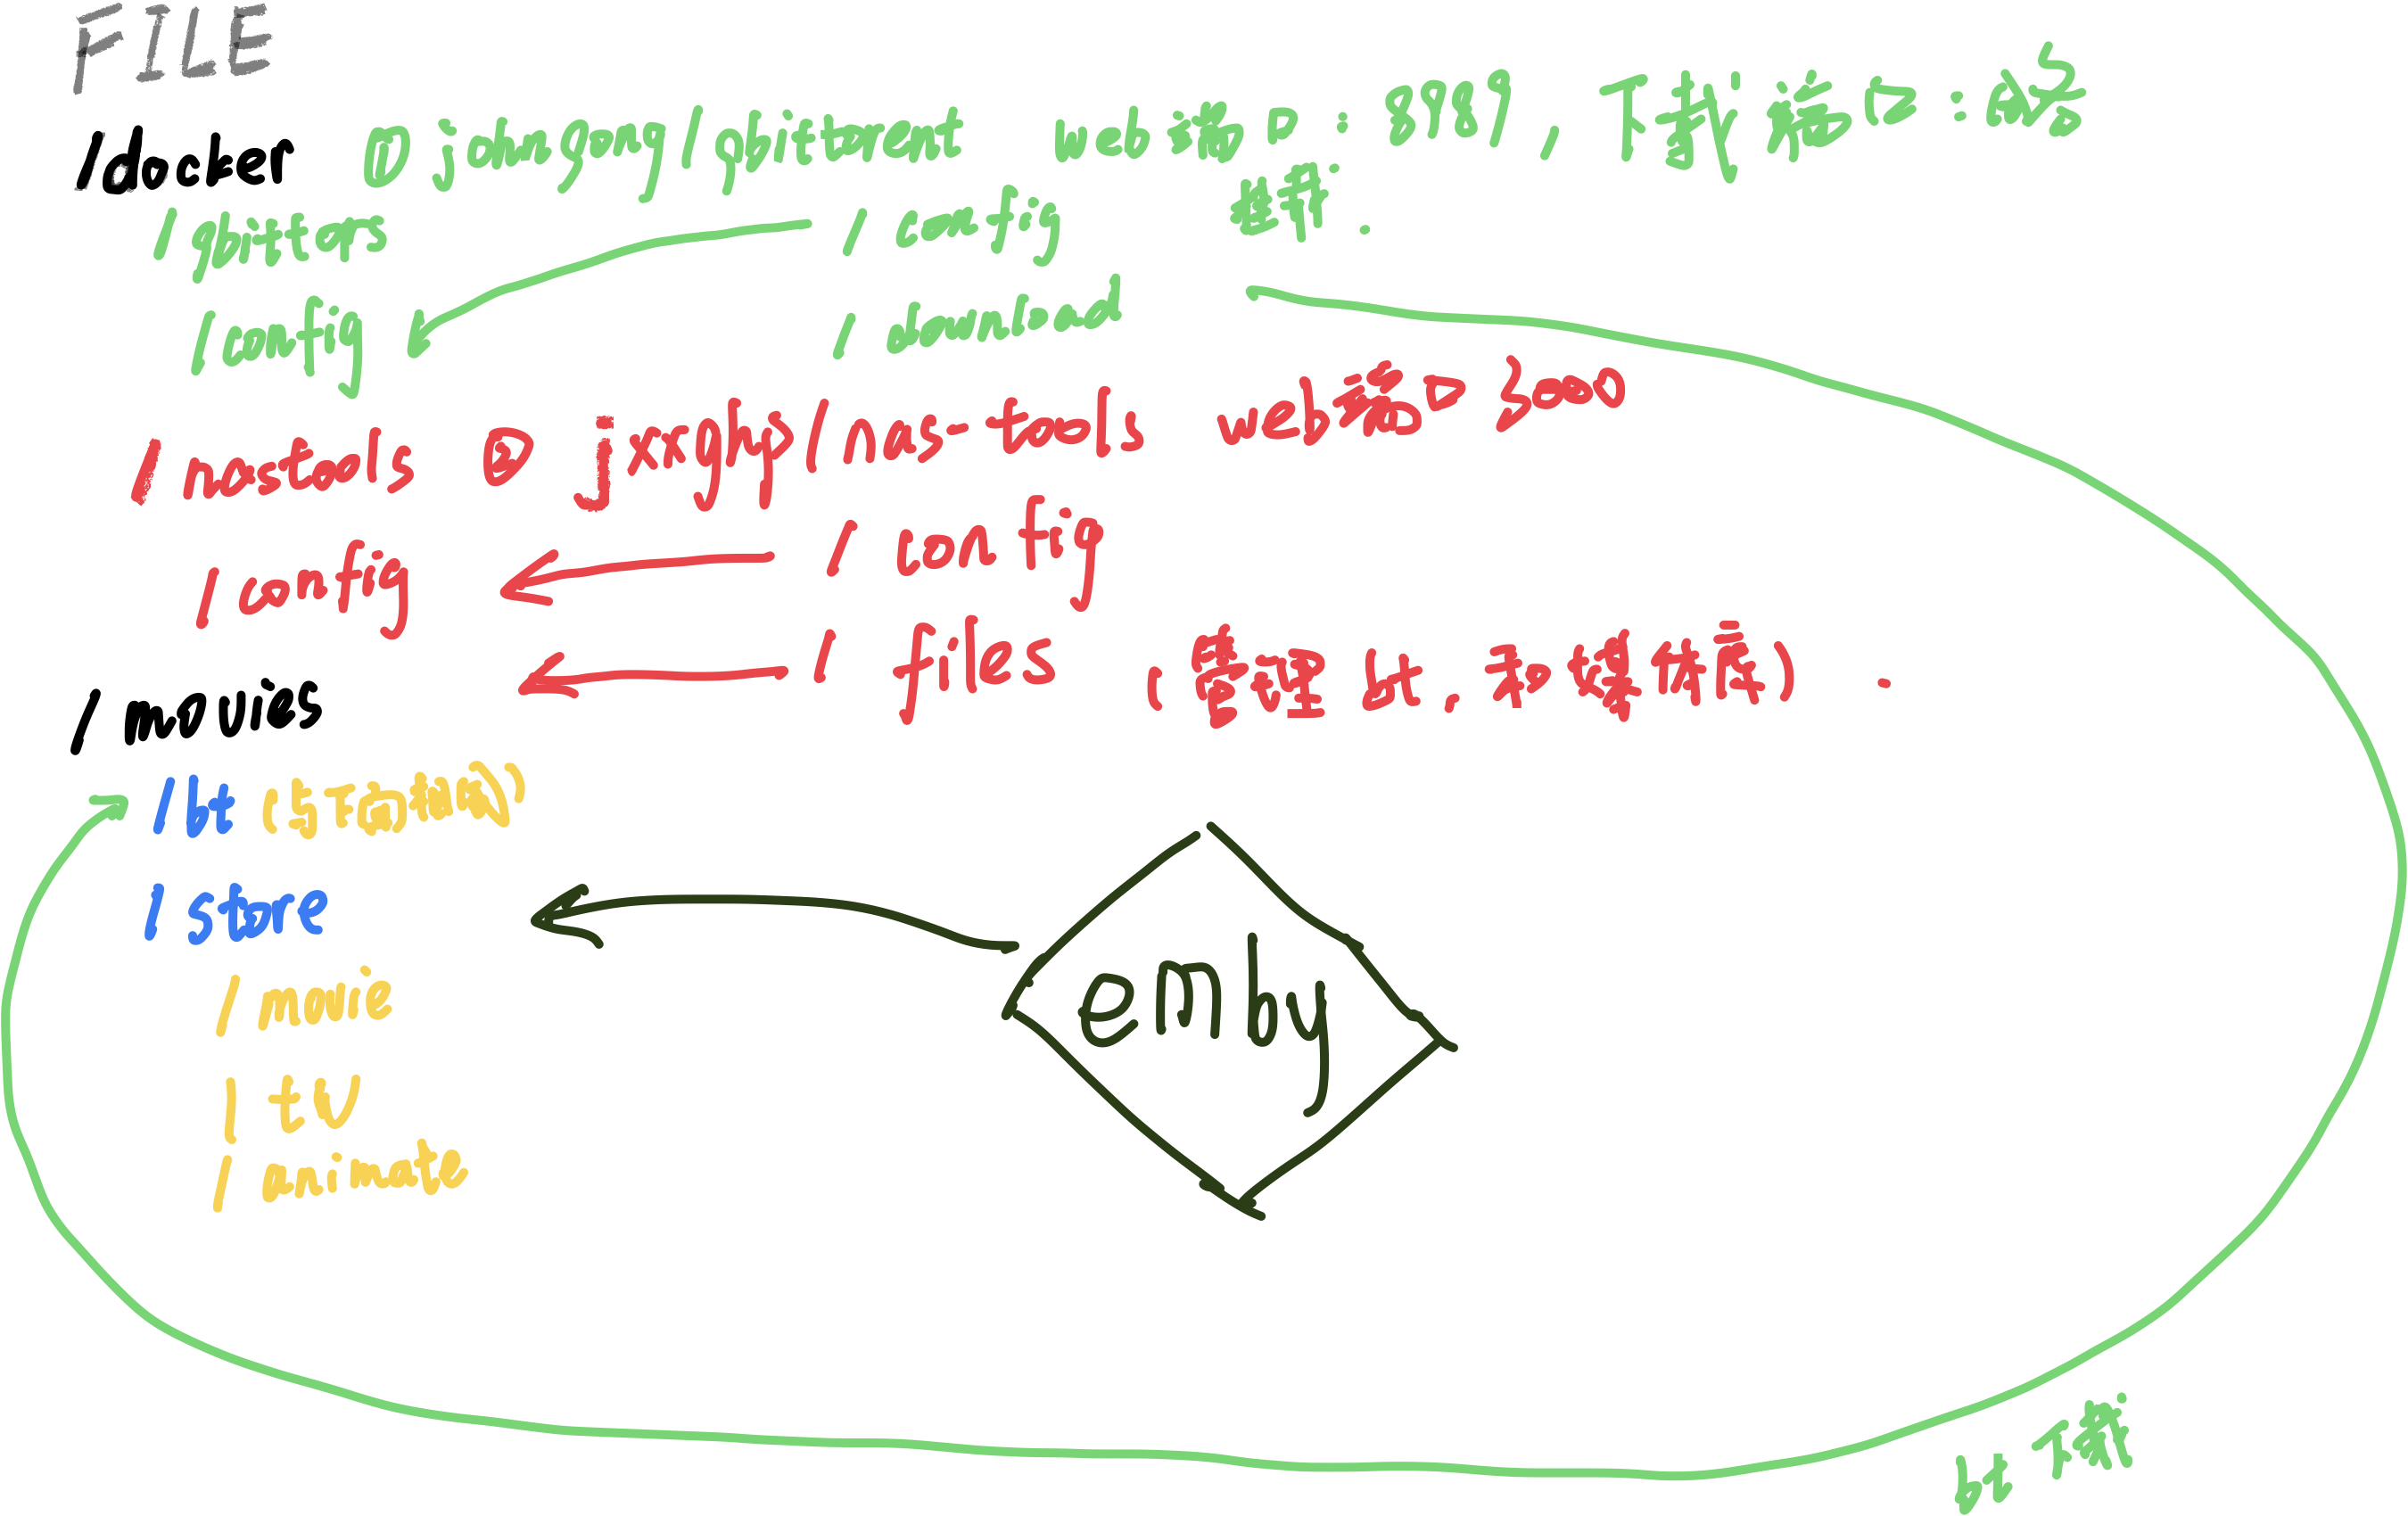 FILE
/docker
①: emmgeng/qbittorrent web端口: 8989, 下载端口:
/qbittorr
/config
/config
/download
/nastools ② jxxghp/nas-tools web端口 3000
/config
/config
/files (管理, 不
/movies
/bt (与下
/store
/movie
/tv
/animate
emby
bt 下载